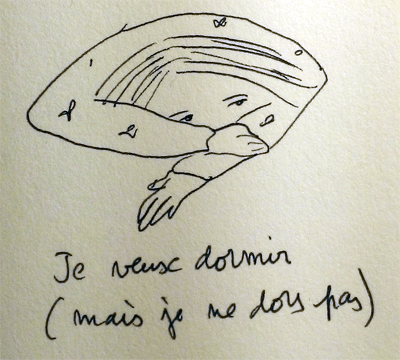 Je veux dormir
(mais je ne dors pas)